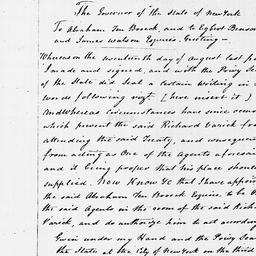 The Governor of the State of New York
To Abraham Ten Broeck, and to Egbert Benson
and James Watson Esquires. Greeting —
Whereas on the seventeenth day of August last pa
I made and signed, and with the Privy Sea
of the State did Seal a certain writing in
words following vizt. [here insert it]
And Whereas circumstances have since occur
which prevent the said Richard Varick from
attending the said Treaty, and consequen
from acting as One of the Agents aforesai
and it being proper that his place shoul
supplied. Now Know Ye that I have appoin
the said Abraham Ten Broeck Esquire to be
the said Agents in the room of the said Rich
Varick, and do authorize him to act accordin
Given under my Hand and the Privy Sea
the State at the City of New York on the third